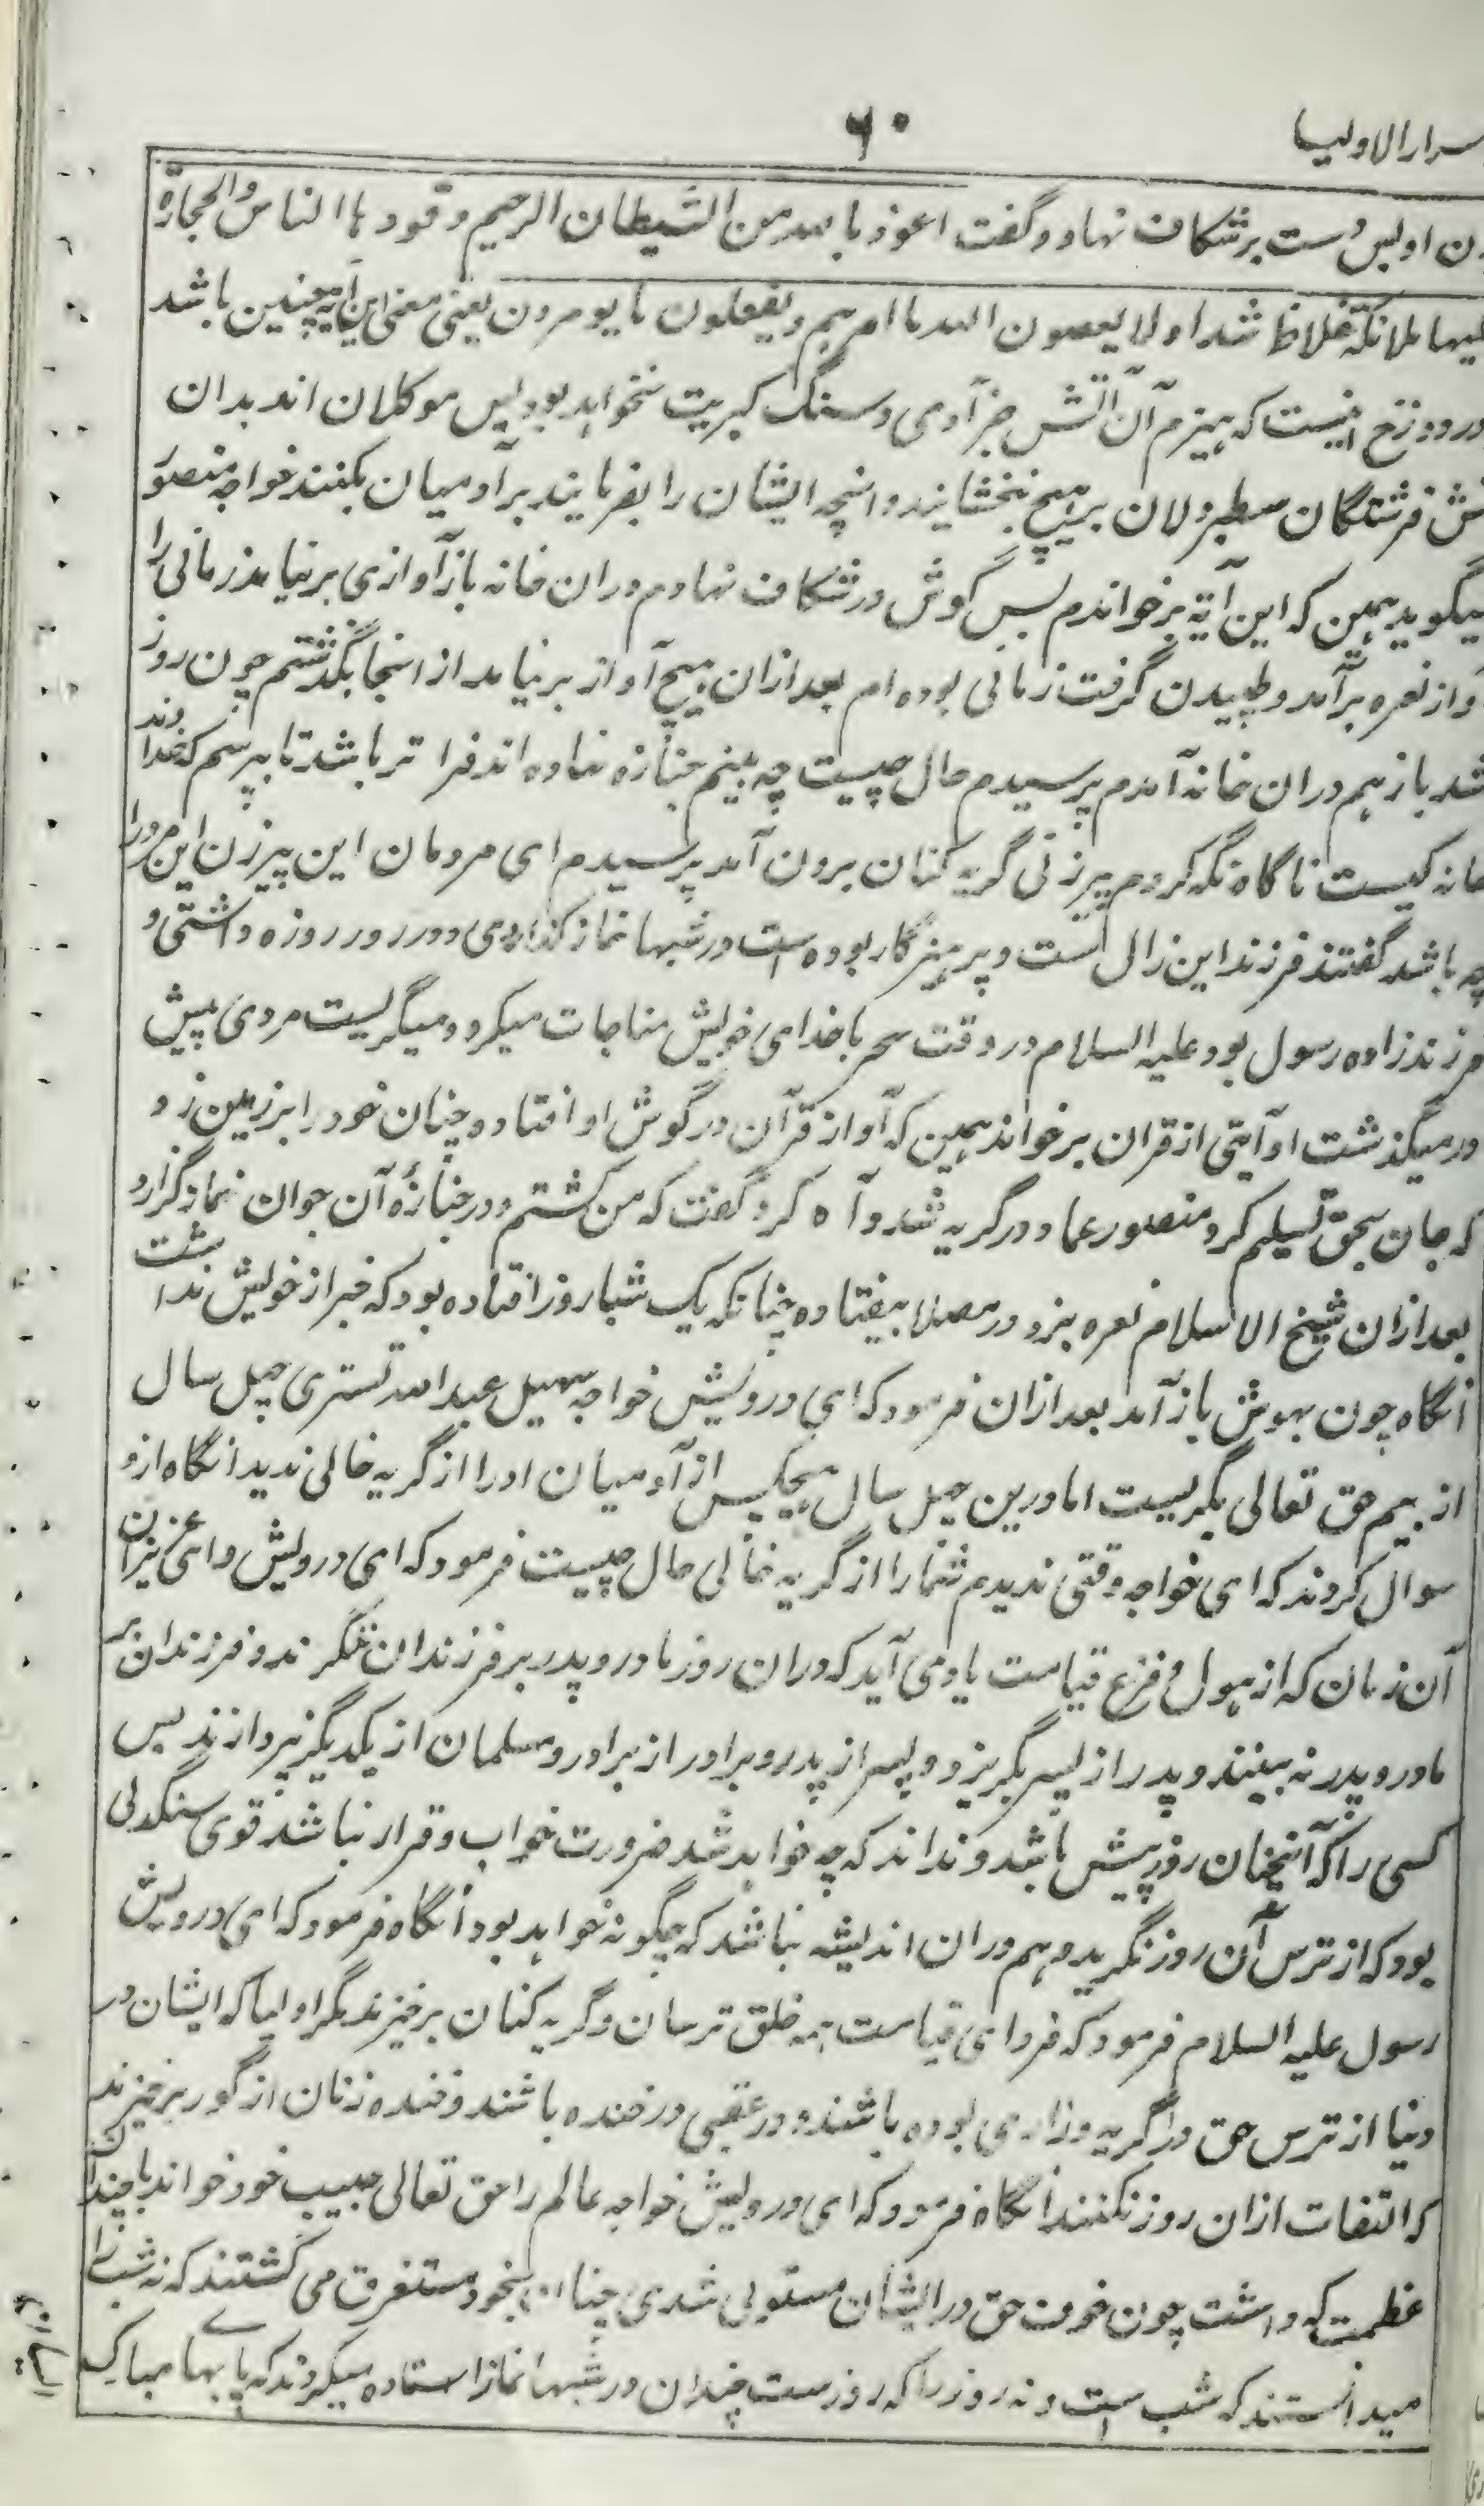 سرار الاولیا
۶۰
ن اولس دست برشکاف نهاد و گفت اعوذ بالله من الشیطان الرجیم وقودها الناس والحجارة
علیها ملائکة غلاظ شداد لا یعصون الله ما امرهم ویفعلون ما یومرون یعنی معنی این آیه چنین باشد
در دوزخ است که هیزم آن آتش جز آدمی و سنگ کبریت نخواهد بود پس موکلان اند بدان
تش فرشتگان سطبر دلان برهیچ نبخشایند و انچه ایشان را بفرمایند بر آدمیان بکنند خواجه منصور
میگوید همین که این آیة برخواندم پس گوش در شکاف نهادم دران خانه باز آوازی برنیامد زمانی را
واز نعره برآمد و طپیدن گرفت زمانی بوده ام بعد ازان هیچ آواز برنیامد از انجا بگذشتم چون روز
شد باز هم دران خانه آمدم پرسیدم حال چیست چه بینم جنازه نهاده اند فرا تر باشد تا بپرسم که خداوند
خانه کیست ناگاه نگه کردم پیرزنی گریه کنان برون آمد پرسیدم ای مردمان این پیرزن این مرد را
چه باشد گفتند فرزند این زال است و پرهیزگار بوده است در شبها نماز گذاردی و در روز روزه داشتی و
فرزندزاده رسول بود علیه السلام در وقت سحر با خدای خویش مناجات میکرد و میگریست مردی پیش
در میگذشت او آیتی از قران برخواند همین که آواز قرآن در گوش او افتاد چنان خود را بر زمین زد
که جان بحق تسلیم کرد منصور عماد در گریه شد و آه کرد گفت که من کشتم و در جنازهٔ آن جوان نماز گزارد
بعد ازان شیخ الاسلام نعره بزد و در مصلا بیفتاد چنانکه یک شبا روز افتاده بود که خبر از خویش نداشت
انگاه چون بهوش باز آمد بعد ازان فرمود که ای درویش خواجه سهیل عبدالله تستری چهل سال
از بیم حق تعالی بگریست اما درین چهل سال هیچکس از آدمیان او را از گریه خالی ندید انگاه ازو
سوال کردند که ای خواجه وقتی ندیدم شما را از گریه خالی حال چیست فرمود که ای درویش و ای عزیزان
آن زمان که از هول و فزع قیامت یاد می آید که دران روز مادر و پدر بر فرزندان ننگرند و فرزندان بر
مادر و پدر نه بینند و پدر از پسر بگریزد و پسر از پدر و برادر از برادر و مسلمان از یکدیگر نپردازند پس
کسی را که آنچنان روز پیش باشد و نداند که چه خواهد شد ضرورت خواب و قرار نباشد قوی سنگدلی
بود که از ترس آن روز نگرید و هم دران اندیشه نباشد که چگونه خواهد بود انگاه فرمود که ای درویش
رسول علیه السلام فرمود که فردای قیامت همه خلق ترسان و گریه کنان برخیزند مگر اولیا که ایشان در
دنیا از ترس حق در گریه و زاری بوده باشند و در عقبی در خنده باشند و خنده زنان از گور برخیزند
که التفات ازان روز نکنند انگاه فرمود که ای درویش خواجه عالم را حق تعالی حبیب خود خواند با چندان
عظمت که داشت چون خوف حق در ایشان مستولی شدی چنان بیخود مستغرق می گشتند که نه شب را
میدانستند که شب است و نه روز را که روز ست چندان در شبها نماز استاده میکردند که پایها مبارک